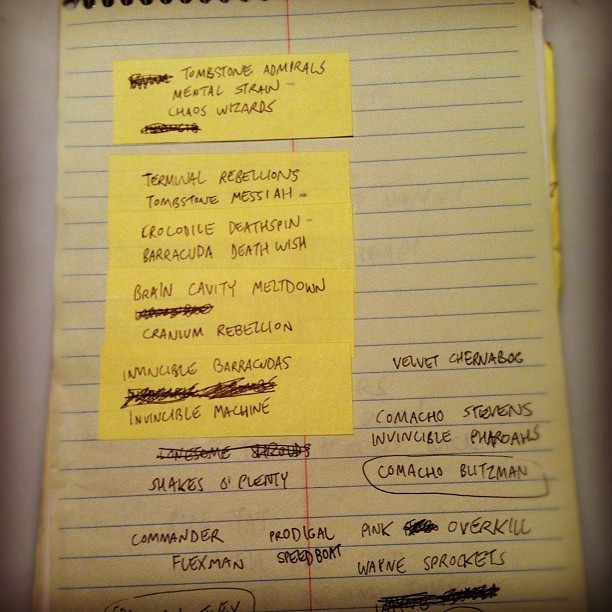 TOMBSTONE ADMIRALS
MENTAL STRAIN -
CHAOS WIZARDS
TERMINAL REBELLIONS
TOMBSTONE MESSIAH -
CROCODILE DEATHSPIN -
BARRACUDA DEATH WISH
BRAIN CAVITY MELTDOWN
CRANIUM REBELLION
INVINCIBLE BARRACUDAS
INVINCIBLE MACHINE
VELVET CHERNABOG
COMACHO STEVENS
INVINCIBLE PHAROAHS
LONESOME SHROUDS
COMACHO BLITZMAN
SHAKES O' PLENTY
COMMANDER FLEXMAN
PRODIGAL SPEEDBOAT
PINK OVERKILL
WAYNE SPROCKETS